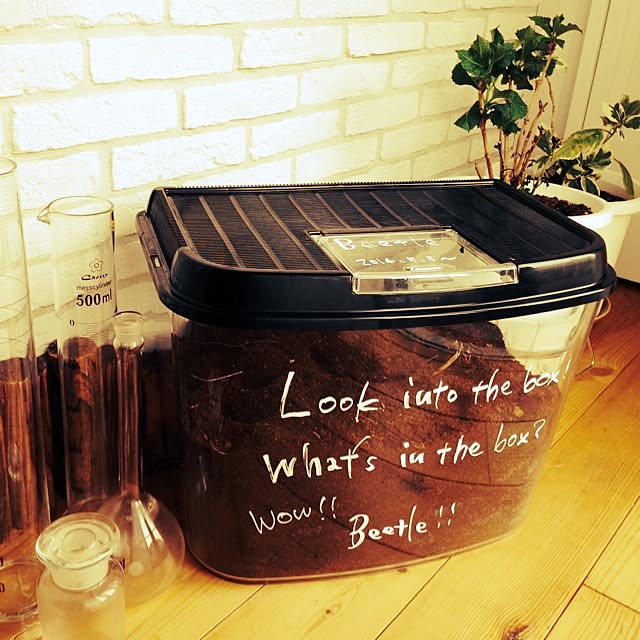 Beetle
Cherry
messcylinder
500ml
0
Look into the box!
What's in the box?
Wow!!
Beetle!!